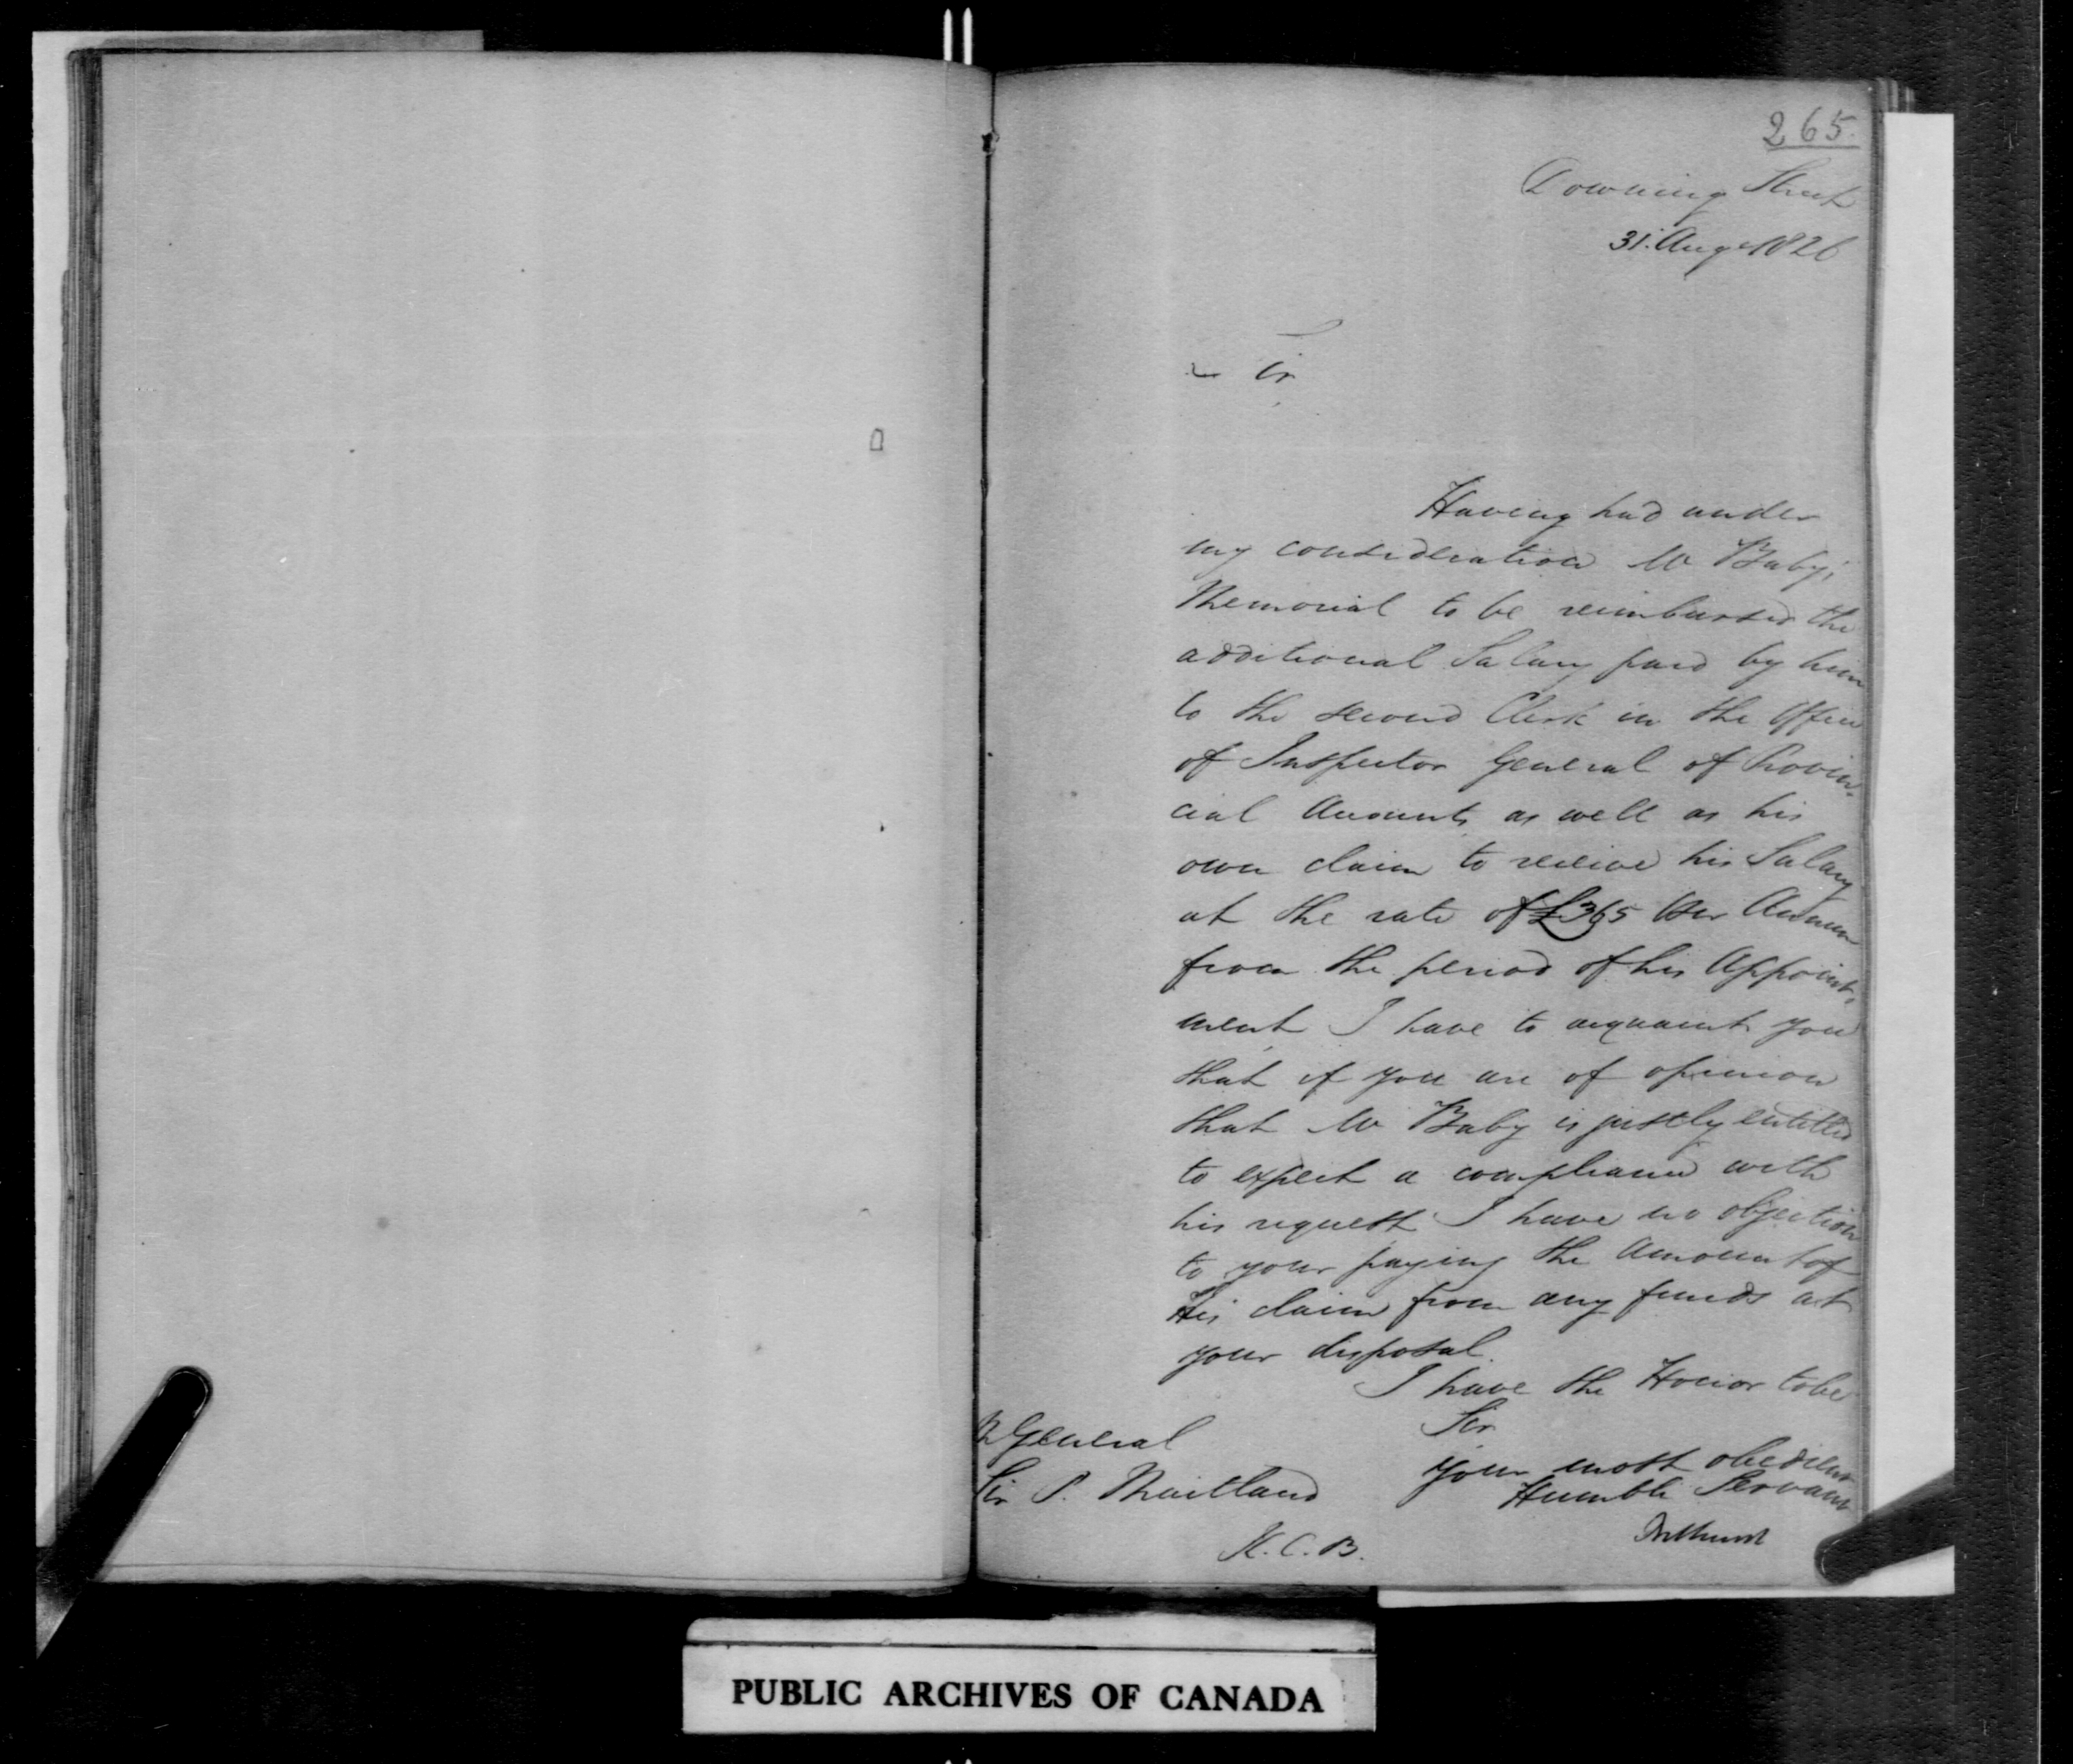 265.
Downing Street
31. Augt 1826
Sir
Having had under
my consideration Mr Baby's
Memorial to be reimbursed the
additional Salary paid by him
to the second Clerk in the Office
of Inspector General of Provin-
cial Accounts as well as his
own claim to receive his Salary
at the rate of £365 per Annum
from the period of his Appoint-
ment I have to acquaint you
that if you are of opinion
that Mr Baby is justly entitled
to expect a compliance with
his request I have no objection
to your paying the Amount of
His claim from any funds at
your disposal.
I have the Honor to be
Sir
Your most obedient
Humble Servant
Bathurst
General
Sir P. Maitland
K.C.B.
PUBLIC ARCHIVES OF CANADA